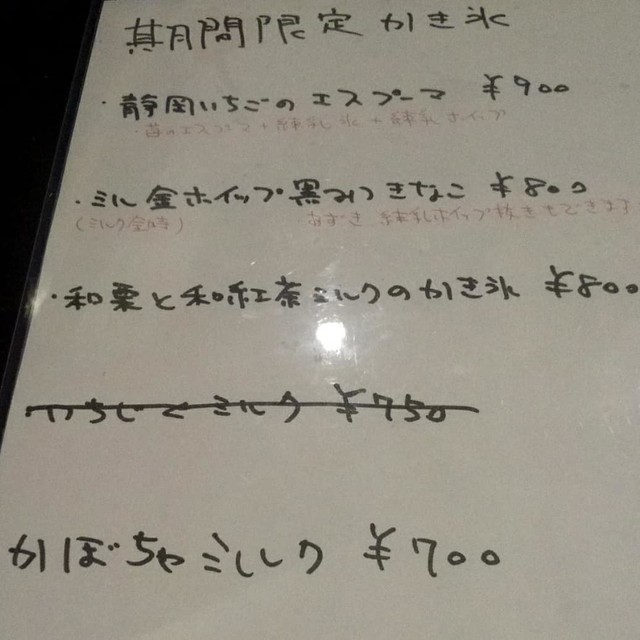 期間限定 かき氷
・静岡いちごのエスプーマ ¥900
・苺のエスプーマ+練乳氷+練乳ホイップ
・ミルク金ホイップ黒みつきなこ ¥800
(ミルク金時) あずき、練乳ホイップ抜きもできます
・和栗と和紅茶ミルクのかき氷 ¥800
いちじくミルク ¥750
かぼちゃミルク ¥700